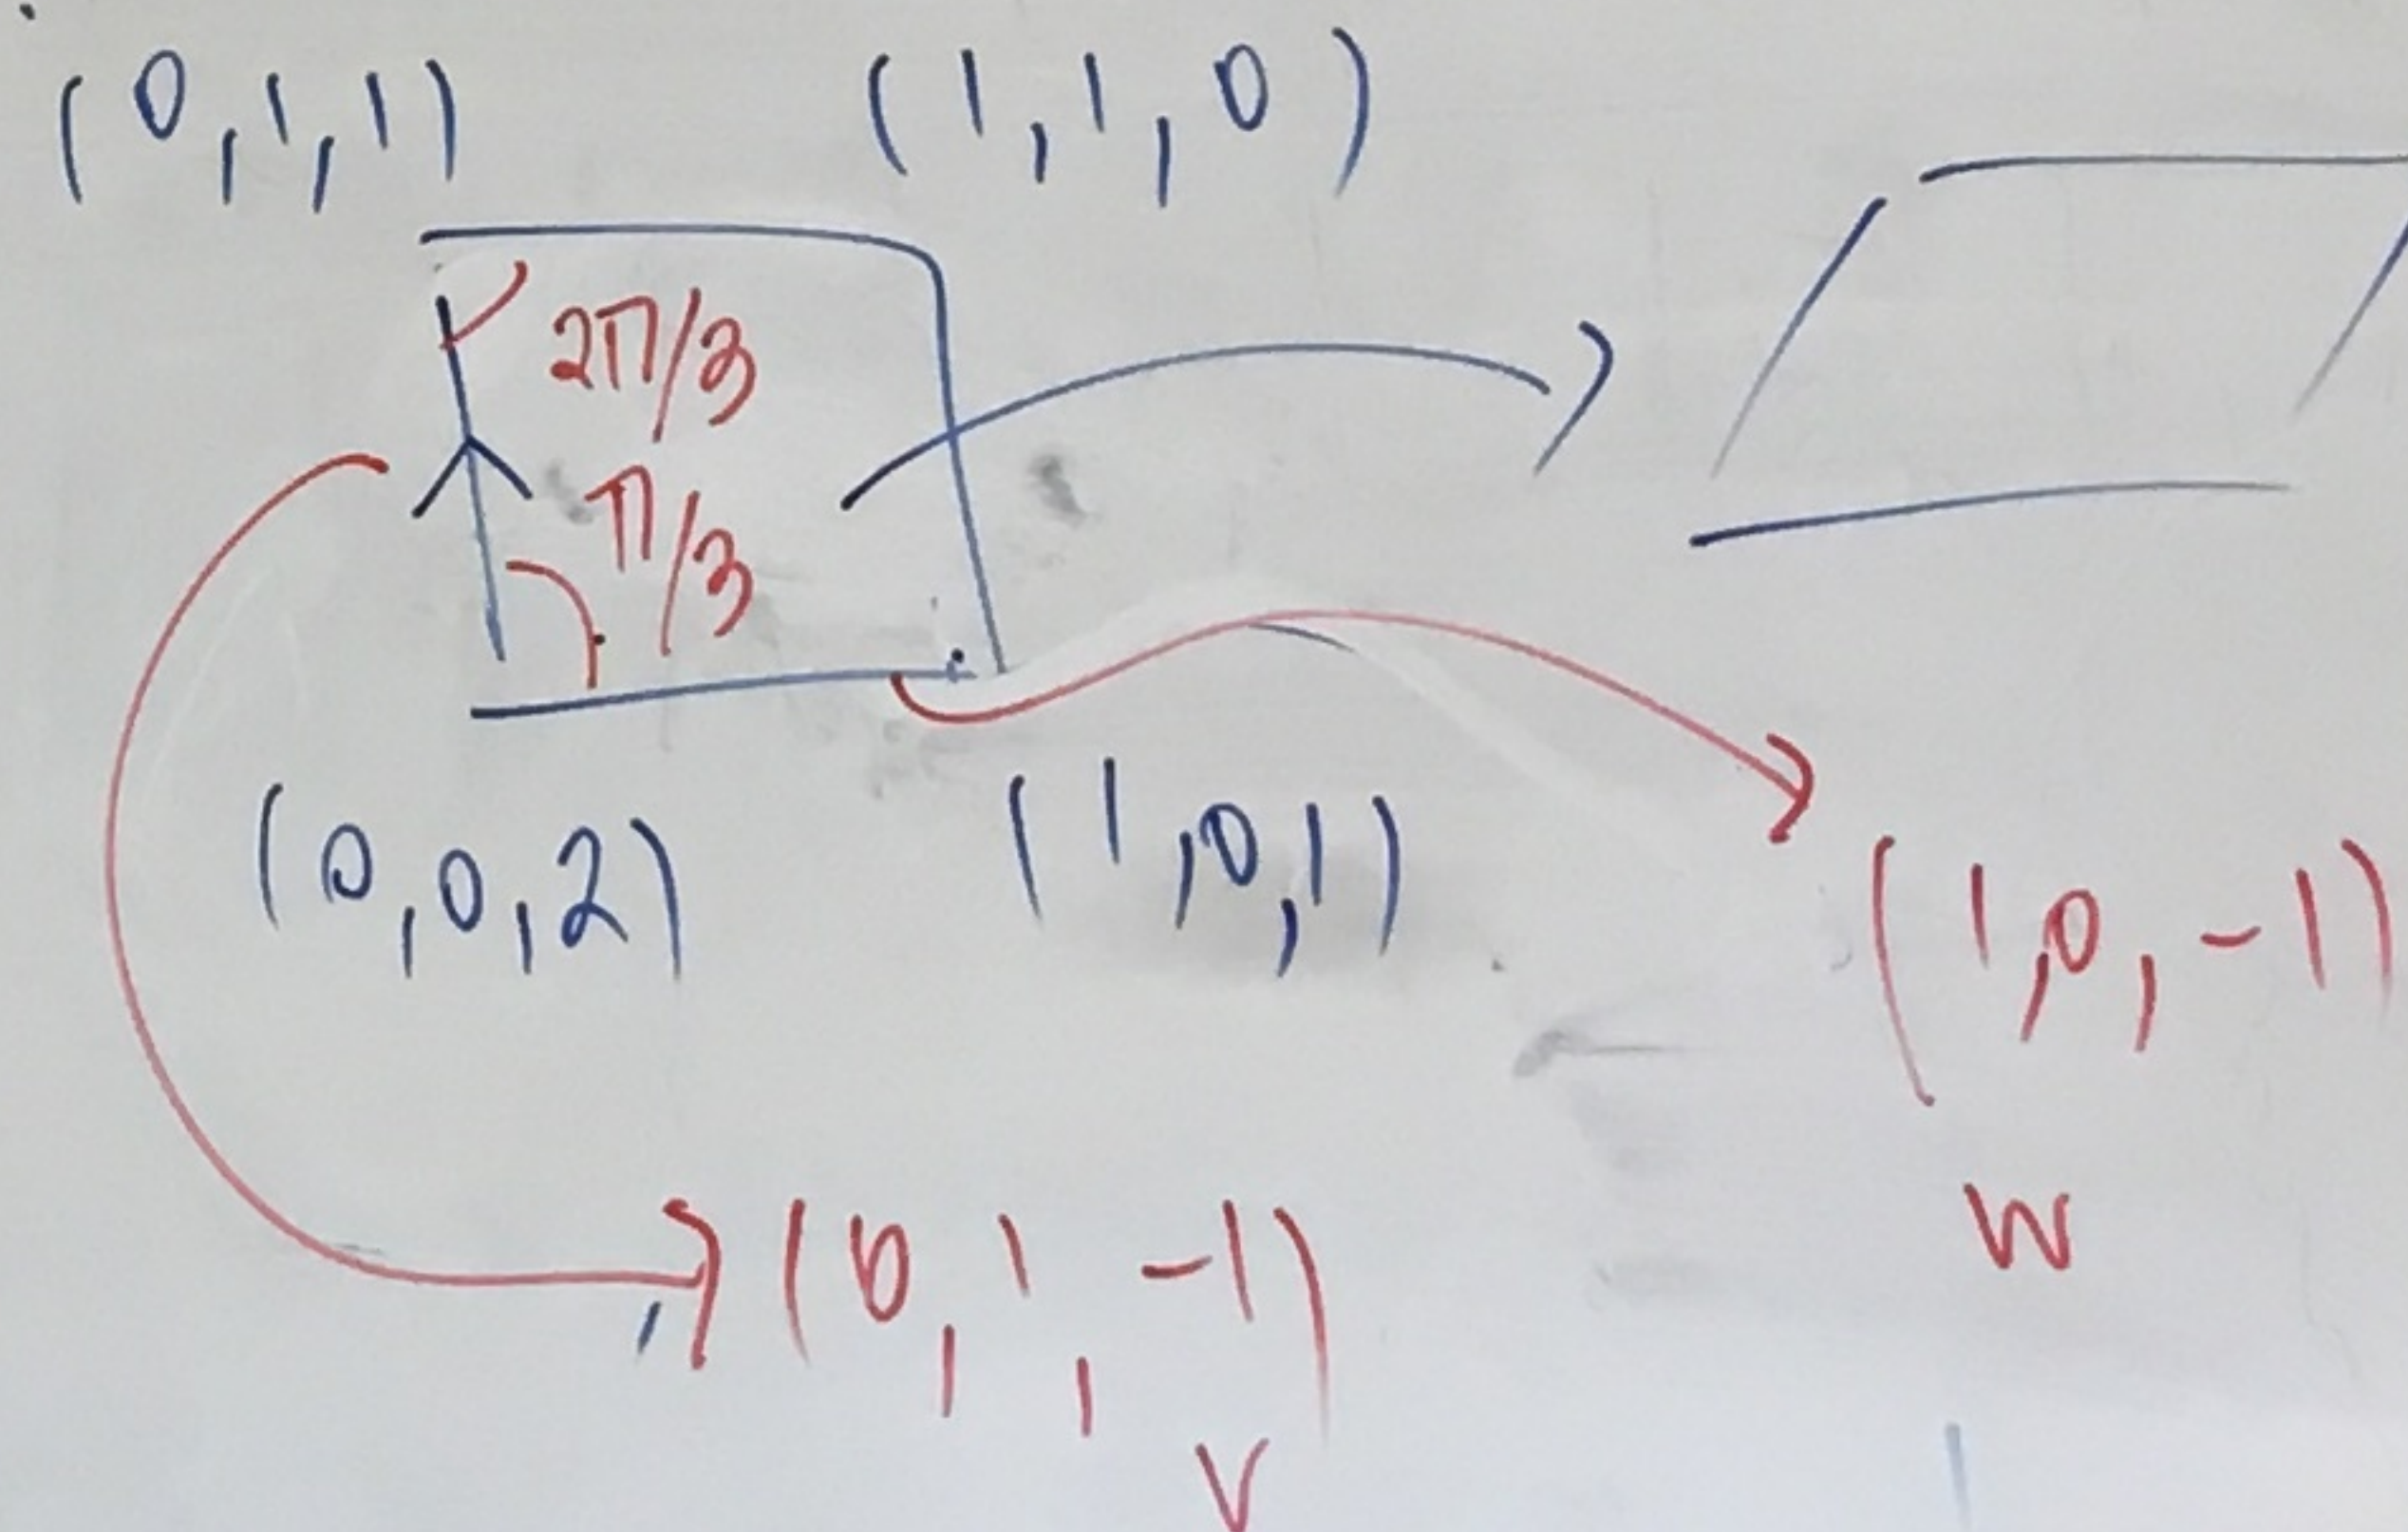 (0,1,1) (1,1,0)
2π/3
π/3
(0,0,2) (1,0,1)
(1,0,-1)
w
(0,1,-1)
v